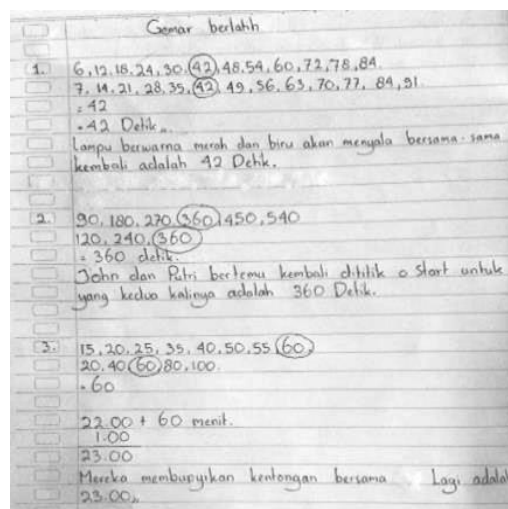 Gemar berlatih
1. 6, 12, 18, 24, 30, 42, 48, 54, 60, 72, 78, 84.
7, 14, 21, 28, 35, 42, 49, 56, 63, 70, 77, 84, 91.
= 42
= 42 Detik.
Lampu berwarna merah dan biru akan menyala bersama-sama
kembali adalah 42 Detik.
2. 90, 180, 270, 360, 450, 540
120, 240, 360
= 360 detik.
John dan Putri bertemu kembali dititik 0 start untuk
yang kedua kalinya adalah 360 Detik.
3. 15, 20, 25, 35, 40, 50, 55, 60
20, 40, 60, 80, 100.
= 60
22.00 + 60 menit.
1.00
23.00
Mereka membunyikan kentongan bersama Lagi adalah
23.00